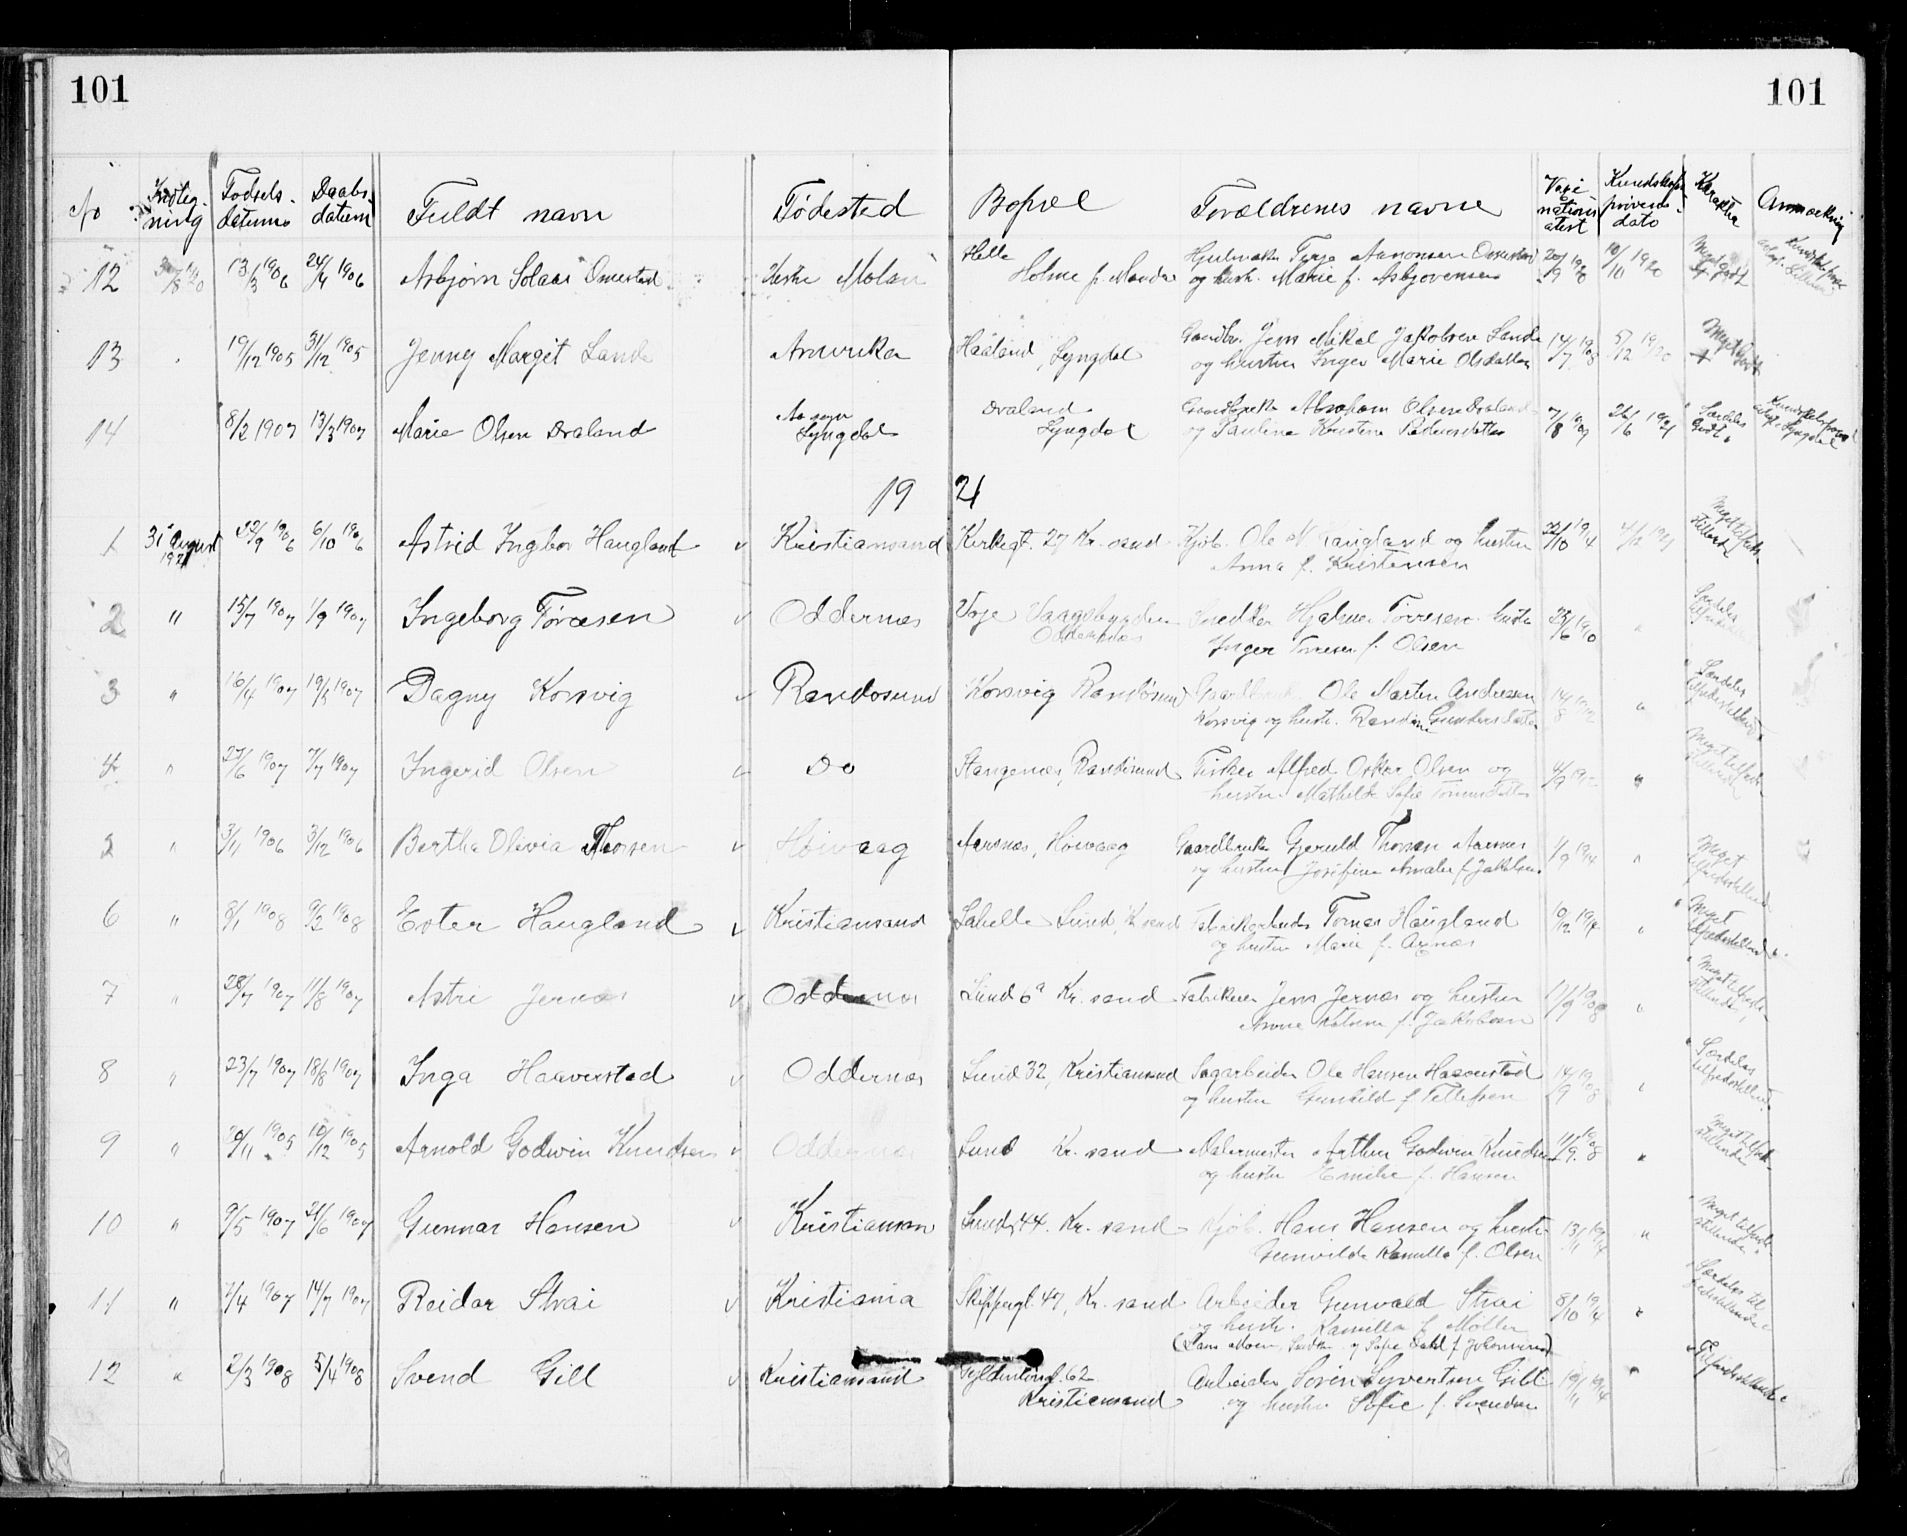 101 101
No Indtegning Fødselsdatum Daabsdatum Fuldt navn Fødested Bopæl Forældrenes navne Vaxinationsatest Kundskapsprøvens dato Karakter Anmerkning
12 13/3 1906 24/4 1906 Asbjørn Solaas Omestad Vestre Molan Helle Hjulmaker Terje Aanonsen Omestad 20/9 1920 10/10 1920 Meget godt
Holme pr. Mandal og hustr. Marie f. Asbjørnsen
13 19/12 1905 31/12 1905 Jenny Margit Lande Amerika Haaland, Lyngdal Gaardbr. Jens Mikal Jakobsen Lande 14/7 1908 5/12 1920 Meget Godt
og hustru Inger Marie Olsdatter
14 8/2 1907 13/3 1907 Marie Olsen Draland Draland Gaardbruker Abraham Olsen Draland 7/8 1909 26/6 1921 Særdeles Godt
Lyngdal Lyngdal og Pauline Kristine Pedersdatter
19 21
1 31 August 1921 22/9 1906 6/10 1906 Astrid Ingbor Haugland v Kristiansand Kirkegt. 27 Kr. sand Kjøb. Ole N Haugland og hustru 22/10 1914 4/12 1921 Meget tilfredsstillende
Anna f. Kristensen
2 " 15/7 1907 1/9 1907 Ingeborg Tørresen v Oddernes Voje Vaagsbygden Snedker Hjalmar Tørresen hustru 25/6 1910 " Særdeles
Oddernes Inger Tørresen f. Olsen
3 " 16/4 1907 19/5 1907 Dagny Korsvig v Randøsund Korsvig Randøsund Gaardbruk. Ole Martin Andreassen 14/8 1912 " Særdeles tilfredsstillende
Korsvig og hustr. Randine Gundersdatter
4 " 27/6 1907 7/7 1907 Ingerid Olsen v Do Stangenes, Randøsund Fisker Alfred Oskar Olsen og " Meget tilfredsstillende
hustru Mathilde Sofie
" 3/11 1906 3/12 1906 Bertha Olivia Thorsen v Høivaag Aarsnes, Høivaag Gaardbruker Gjeruld Thorsen Aarsnes 1/9 1914 " Meget tilfredsstillende
og hustru Josefine Amalie f. Jakobsen
6 " 8/1 1908 9/2 1908 Ester Haugland v Kristiansand Sahelle Lund, K sand Fabrikarbeider Tomas Haugland 10/12 1914 " Meget tilfredsstillende
og hustru Marie f. Aasnes
7 " 28/7 1907 11/8 1907 Astri Jernæs v Oddernes Lund 6a Kr. sand Fabrikeier Jens Jernæs og hustru 11/9 1908 " Meget tilfredsstillende
Anne f. Jakobsen
8 " 23/7 1907 18/8 1907 Inga Haaverstad v Oddernes Lund 32, Kristiansand Sagarbeider Ole Hansen Haaverstad 14/9 1908 " Særdeles tilfredsstillende
og hustru Gunhild f. Tellefsen
9 " 20/11 1905 10/12 1905 Arnold Godwin Knudsen v Oddernes Lund Kr. sand Malermester Arthur Godwin Knudsen 11/9 1908 " Meget tilfredsstillende
og hustru Emilie f. Hansen
10 " 9/5 1907 21/6 1907 Gunnar Hansen v Kristiansan Lund, 44. Kr. sand Kjøb. Hans Hansen og hustru 13/11 1914 " Meget tilfredsstillende
Gunvilda Kamilla f. Olsen
11 " 2/4 1907 14/7 1907 Reidar Strai v Kristiania Skippergt. 47, Kr. sand Arbeider Gunvald Strai 8/10 1914 " Særdeles tilfredsstillende
og hustr. Kamilla f. Møller
12 " 2/3 1908 5/4 1908 Svend Gill v Kristiansand Gyldenløvsgt. 62 Arbeider Søren Syvertsen Gill 10/11 1914 " Tilfredsstillende
Kristiansand og hustru Sofie f. Svendsen